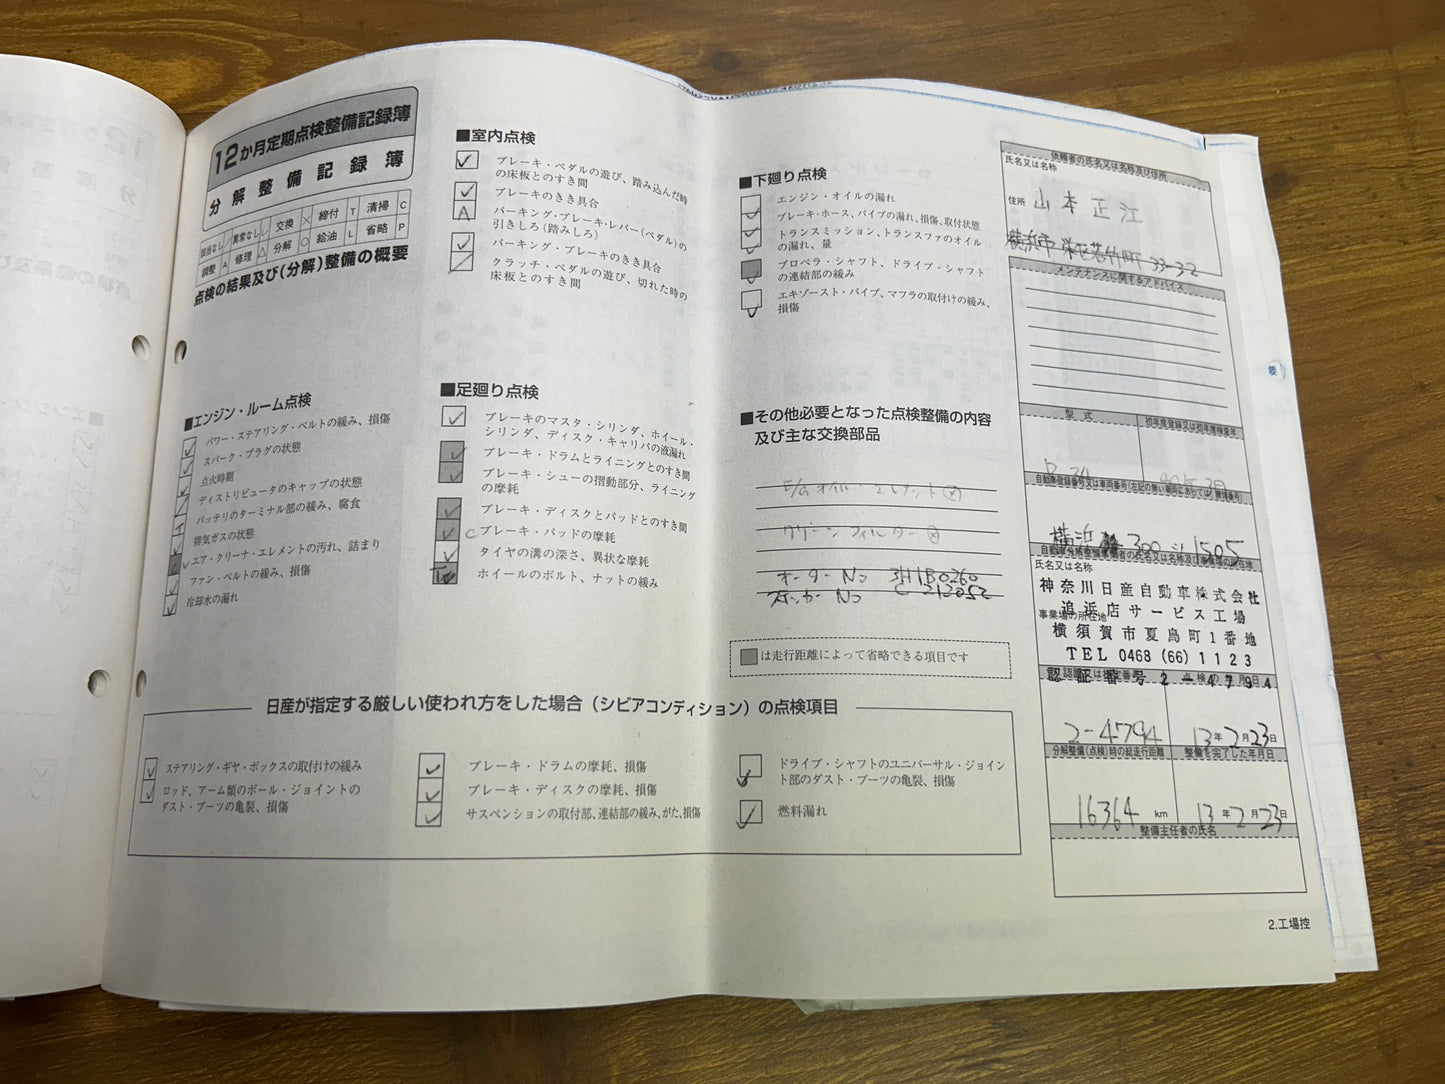 12か月定期点検整備記録簿
分解整備記録簿
該当なし／ 異常なし✓ 交換× 締付T 清掃C
調整A 修理△ 分解○ 給油L 省略P
点検の結果及び(分解)整備の概要
■エンジン・ルーム点検
パワー・ステアリング・ベルトの緩み、損傷
スパーク・プラグの状態
点火時期
ディストリビュータのキャップの状態
バッテリのターミナル部の緩み、腐食
排気ガスの状態
エア・クリーナ・エレメントの汚れ、詰まり
ファン・ベルトの緩み、損傷
冷却水の漏れ
■室内点検
ブレーキ・ペダルの遊び、踏み込んだ時
の床板とのすき間
ブレーキのきき具合
A パーキング・ブレーキ・レバー(ペダル)の
引きしろ(踏みしろ)
パーキング・ブレーキのきき具合
クラッチ・ペダルの遊び、切れた時の
床板とのすき間
■足廻り点検
ブレーキのマスタ・シリンダ、ホイール・
シリンダ、ディスク・キャリパの液漏れ
ブレーキ・ドラムとライニングとのすき間
ブレーキ・シューの摺動部分、ライニング
の摩耗
ブレーキ・ディスクとパッドとのすき間
C ブレーキ・パッドの摩耗
タイヤの溝の深さ、異状な摩耗
ホイールのボルト、ナットの緩み
■下廻り点検
エンジン・オイルの漏れ
ブレーキ・ホース、パイプの漏れ、損傷、取付状態
トランスミッション、トランスファのオイル
の漏れ、量
プロペラ・シャフト、ドライブ・シャフト
の連結部の緩み
エキゾースト・パイプ、マフラの取付けの緩み、
損傷
■その他必要となった点検整備の内容
及び主な交換部品
E/G オイル・エレメント ⊗
クリーンフィルター ⊗
オーダー No 3H1B0260
ステッカー No C 213052
は走行距離によって省略できる項目です
日産が指定する厳しい使われ方をした場合(シビアコンディション)の点検項目
ステアリング・ギヤ・ボックスの取付けの緩み
ロッド、アーム類のボール・ジョイントの
ダスト・ブーツの亀裂、損傷
ブレーキ・ドラムの摩耗、損傷
ブレーキ・ディスクの摩耗、損傷
サスペンションの取付部、連結部の緩み、がた、損傷
ドライブ・シャフトのユニバーサル・ジョイン
ト部のダスト・ブーツの亀裂、損傷
燃料漏れ
依頼者の氏名又は名称及び住所
氏名又は名称
山本正江
住所
横浜市 栄区若竹町 33-32
メンテナンスに関するアドバイス
型式 初年度登録又は初年度検査年
自動車登録番号又は車両番号(左記の無い車両にあっては、車体番号)
横浜 300 1505
自動車分解整備事業者の氏名又は名称及び事業場の所在地
氏名又は名称
神奈川日産自動車株式会社
追浜店サービス工場
事業場の所在地
横須賀市夏島町1番地
TEL 0468 (66) 1123
認証番号 2-4794
2-4794 13年2月23日
分解整備(点検)時の総走行距離 整備を完了した年月日
16364 km 13年2月23日
整備主任者の氏名
2.工場控